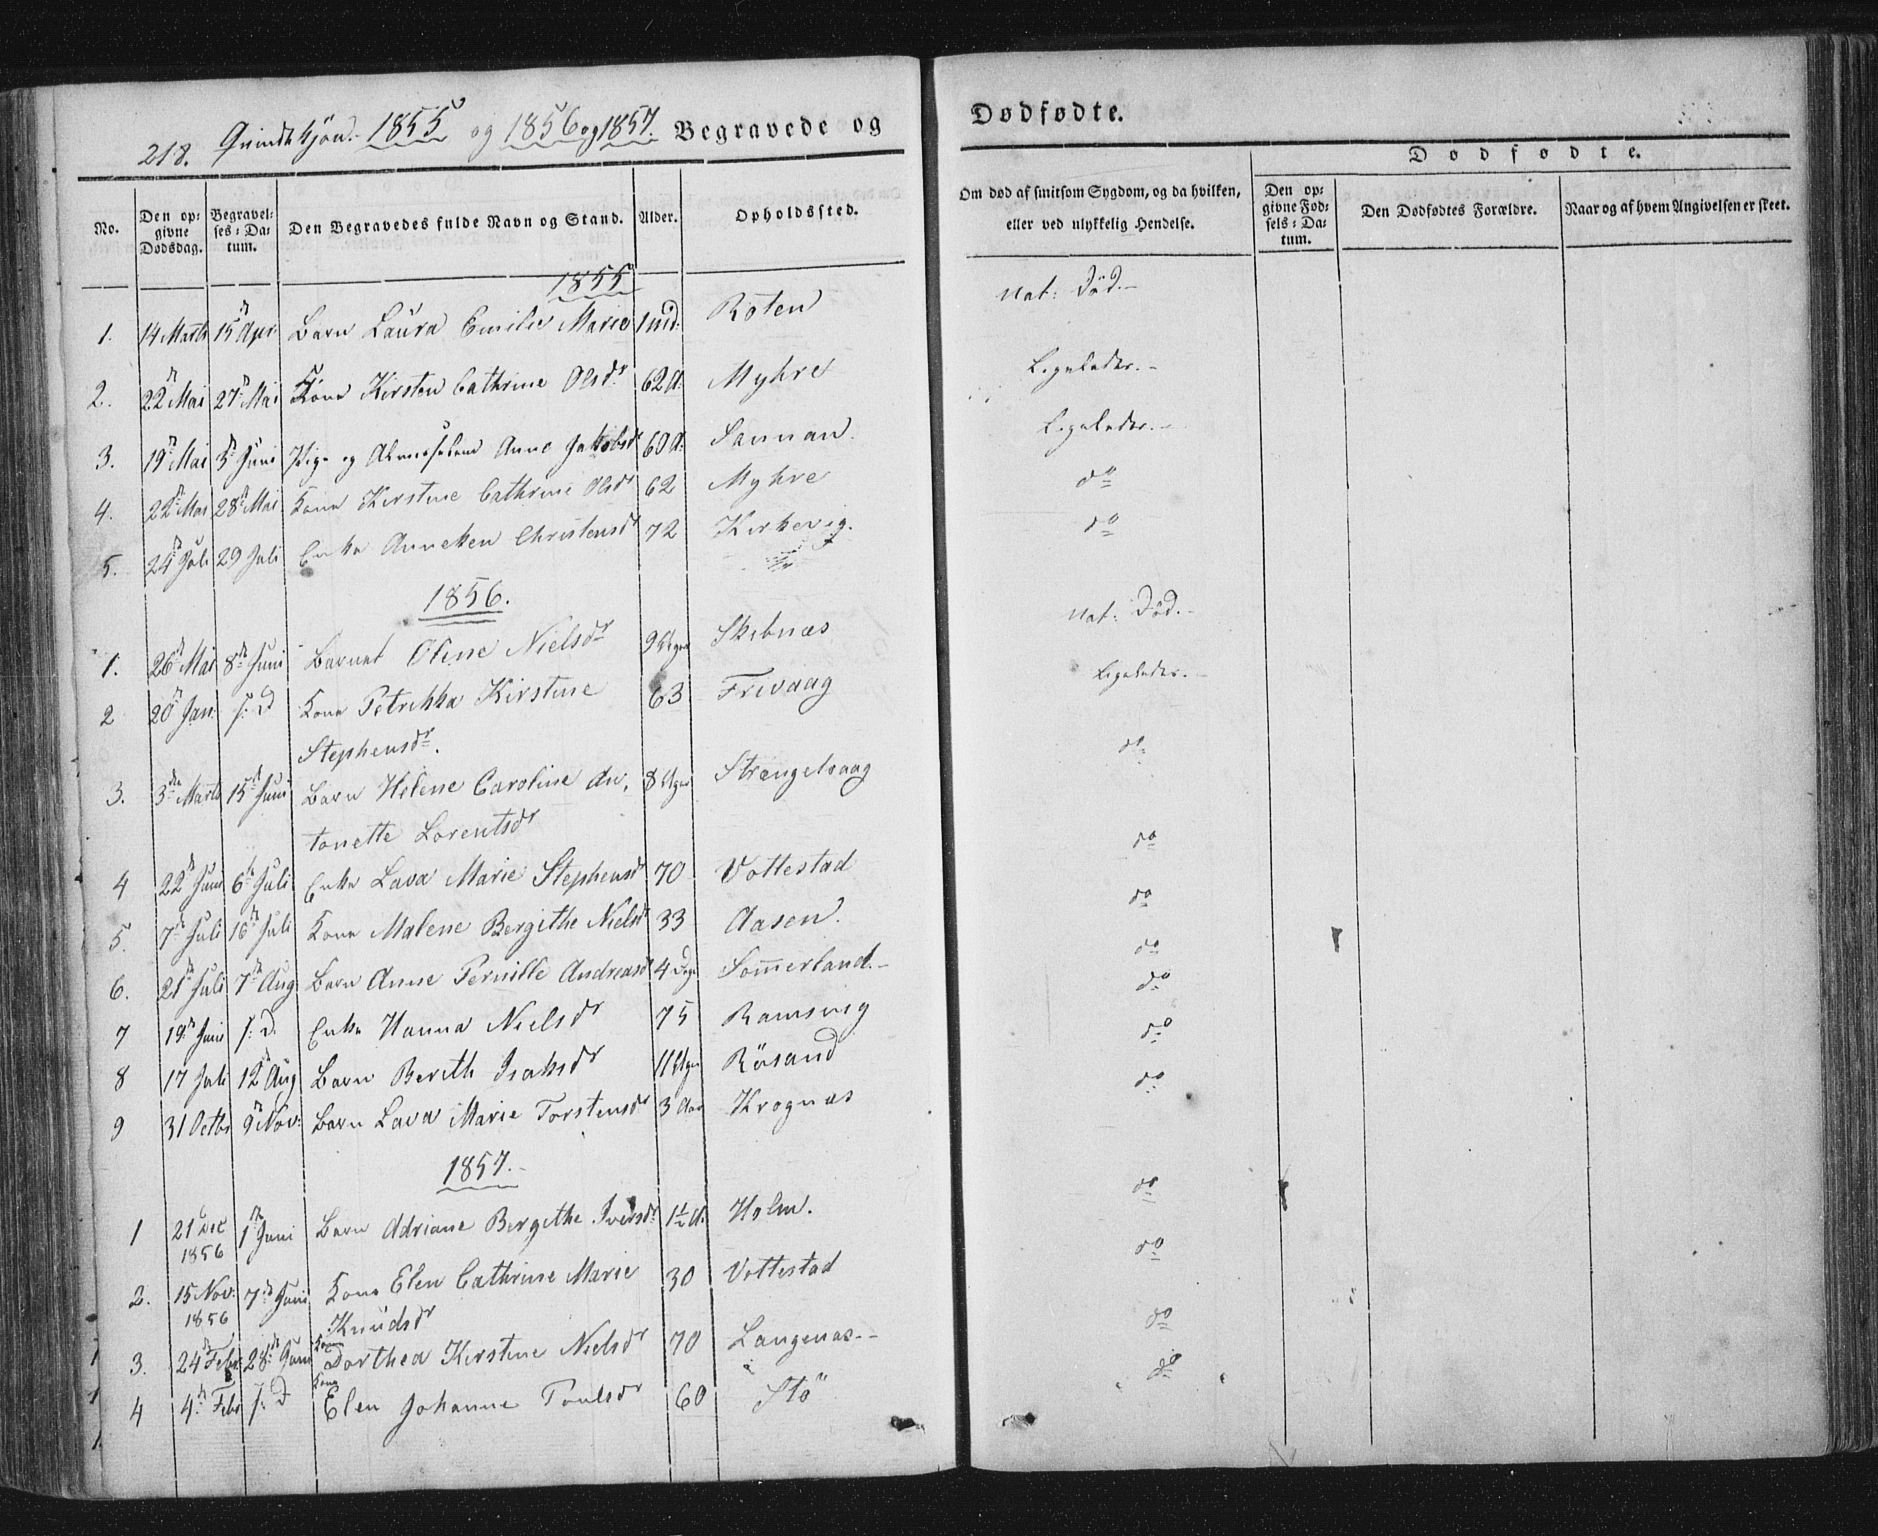 218. Qvindekjøn. 1855 og 1856 og 1857. Begravede og
Dødfødte.
No. | Den opgivne Dødsdag. | Begravelses-Datum. | Den Begravedes fulde Navn og Stand. | Alder. | Opholdssted. | Om død af smitsom Sygdom, og da hvilken, eller ved ulykkelig Hendelse. | Dødfødte. | Den opgivne Fødsels-Datum. | Den Dødfødtes Forældre. | Naar og af hvem Angivelsen er skeet.
1855
1. 14 Marts 15 Apr Barn Laura Emilie Marie 1 md: Roten Nat: Død.-
2. 22 Mai 27 Mai Kone Kirsten Cathrine Olsdr 62 A. Myhre Ligeledes.-
3. 19 Mai 3 Juni Pige og Anne Jakobsdr 60 A. Sannan. Ligeledes.-
4. 22 Mai 28 Mai Kone Kirstine Cathrine Olsdr 62 Myhre do
5. 24 Juli 29 Juli Enke Anneken Christensdr 72 Kirkevig. do
1856.
1. 26 Mai 8de Juni Barnet Oline Nielsdr 9 Uger Skibnæs Nat: Død.-
2 20 Jan. s: D Kone Petrikka Kirstine 63 Frivaag Ligeledes.-
Stephensdr.
3. 3die Marts 15de Juni Barn Helene Caroline An, 8 Uger Strengelvaag do
tonette Lorentsdr
4 22 Juni 6te Juli Enke Lava Marie Stephensdr 70 Vottestad do
5. 7de Juli 16de Juli Kone Malene Bergithe Nielsdr 33 Aasen. do
6. 21 Juli 7de Aug Barn Anne Pernille Andreasdr 4 Dage Sommerland.- do
7 19de Juni s: D. Enke Hanna Nielsdr 75 Ramsvig do
8 17 Juli 12 Aug Barn Berith Isaksdr 11 Uger Rösand do
9 31 Octbr 9 Nov: Barn Lava Marie Torstensdr 3 Aar Krognæs do
1857.-
1 21 Dec 1ste Juni Barn Adriane Bergithe Iversdr 1½ A. Holm. do
1856
2. 15 Nov: 7de Juni Kone Elen Cathrine Marie 30 Vottestad do
1856 Knudsdr
3. 24 Febr. 28de Juni Kone Dorthea Kirstine Nielsdr 70 Langenæs.- do
4 4de Febr s: D Kone Elen Johanne Poulsdr 60 Stö do